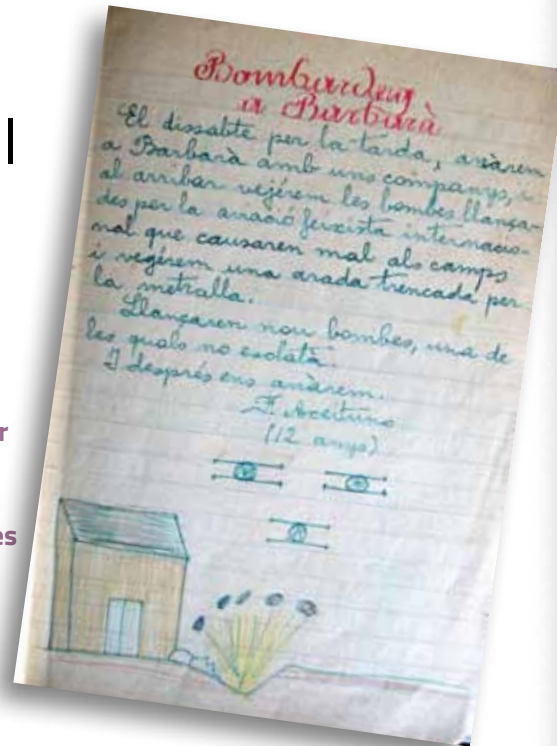 Bombardeig
a Barbarà
El dissabte per la tarda, anàrem
a Barbarà amb uns companys, i
al arribar vejérem les bombes llança-
des per la aviació feixista internacio-
nal que causaren mal als camps
i vegérem una arada trencada per
la metralla.
Llançaren nou bombes, una de
les quals no esclatà.
I després ens anàrem.
F. Aceituno
(12 anys)
r
es